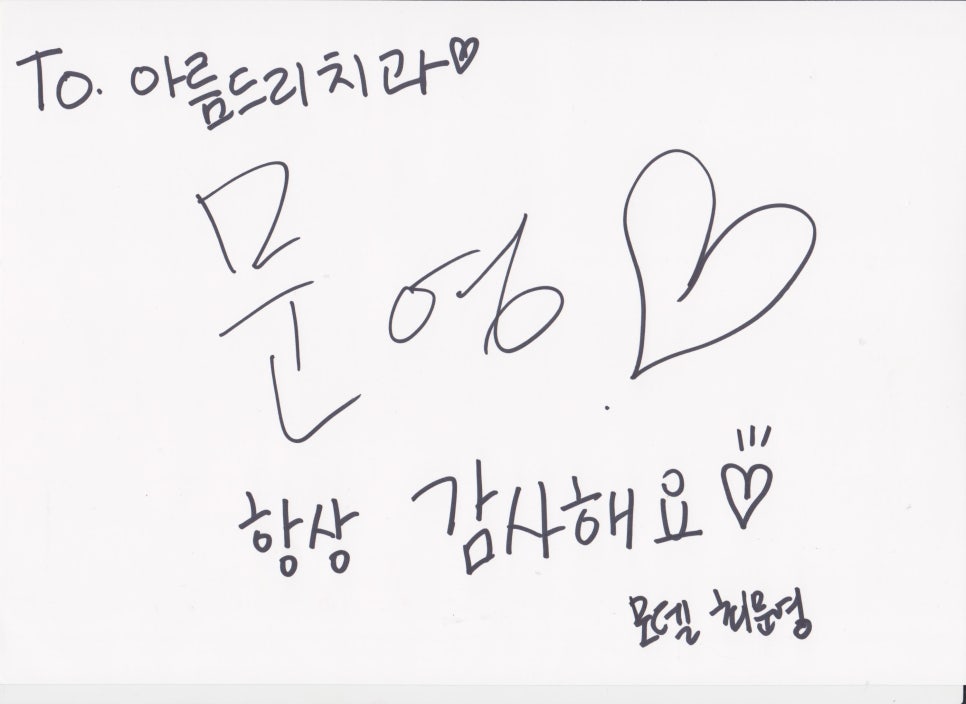 To. 아름드리치과♡
문영♡
항상 감사해요♡
모델 최문영